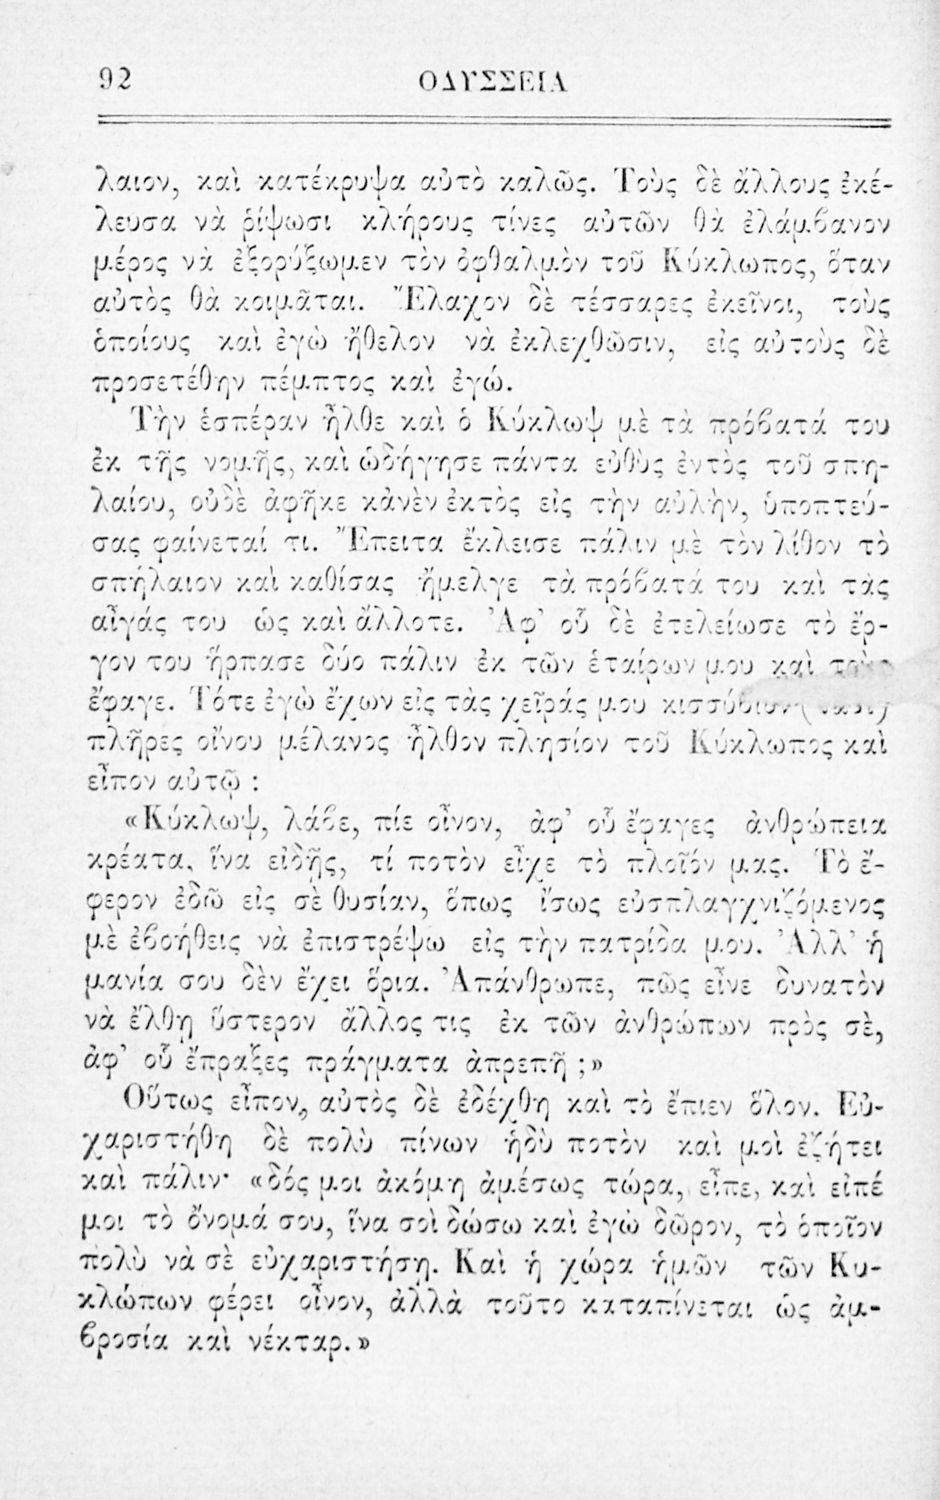 92 ΟΔΥΣΣΕΙΑ
λαιον, καὶ κατέκρυψα αὐτὸ καλῶς. Τοὺς δὲ ἄλλους ἐκέ-
λευσα νὰ ῥίψωσι κλήρους τίνες αὐτῶν θὰ ἐλάμβανον
μέρος νὰ ἐξορύξωμεν τὸν ὀφθαλμὸν τοῦ Κύκλωπος, ὅταν
αὐτὸς θὰ κοιμᾶται. Ἔλαχον δὲ τέσσαρες ἐκεῖνοι, τοὺς
ὁποίους καὶ ἐγὼ ἤθελον νὰ ἐκλεχθῶσιν, εἰς αὐτοὺς δὲ
προσετέθην πέμπτος καὶ ἐγώ.
Τὴν ἑσπέραν ἦλθε καὶ ὁ Κύκλωψ μὲ τὰ πρόβατά του
ἐκ τῆς νομῆς, καὶ ὡδήγησε πάντα εὐθὺς ἐντὸς τοῦ σπη-
λαίου, οὐδὲ ἀφῆκε κἀνὲν ἐκτὸς εἰς τὴν αὐλὴν, ὑποπτεύ-
σας φαίνεταί τι. Ἔπειτα ἔκλεισε πάλιν μὲ τὸν λίθον τὸ
σπήλαιον καὶ καθίσας ἤμελγε τὰ πρόβατά του καὶ τὰς
αἶγάς του ὡς καὶ ἄλλοτε. Ἀφ' οὗ δὲ ἐτελείωσε τὸ ἔρ-
γον του ἥρπασε δύο πάλιν ἐκ τῶν ἑταίρων μου καὶ τοὺς
ἔφαγε. Τότε ἐγὼ ἔχων εἰς τὰς χεῖράς μου κισσύβιον
πλῆρες οἴνου μέλανος ἦλθον πλησίον τοῦ Κύκλωπος καὶ
εἶπον αὐτῷ :
«Κύκλωψ, λάβε, πίε οἶνον, ἀφ' οὗ ἔφαγες ἀνθρώπεια
κρέατα, ἵνα εἰδῇς, τί ποτὸν εἶχε τὸ πλοῖόν μας. Τὸ ἔ-
φερον ἐδῶ εἰς σὲ θυσίαν, ὅπως ἴσως εὐσπλαγχνιζόμενος
μὲ ἐβοήθεις νὰ ἐπιστρέψω εἰς τὴν πατρίδα μου. Ἀλλ' ἡ
μανία σου δὲν ἔχει ὅρια. Ἀπάνθρωπε, πῶς εἶνε δυνατὸν
νὰ ἔλθῃ ὕστερον ἄλλος τις ἐκ τῶν ἀνθρώπων πρὸς σὲ,
ἀφ' οὗ ἔπραξες πράγματα ἀπρεπῆ ;»
Οὕτως εἶπον, αὐτὸς δὲ ἐδέχθη καὶ τὸ ἔπιεν ὅλον. Εὐ-
χαριστήθη δὲ πολὺ πίνων ἡδὺ ποτὸν καὶ μοὶ ἐζήτει
καὶ πάλιν· «δός μοι ἀκόμη ἀμέσως τώρα, εἶπε, καὶ εἰπέ
μοι τὸ ὄνομά σου, ἵνα σοὶ δώσω καὶ ἐγὼ δῶρον, τὸ ὁποῖον
πολὺ νὰ σὲ εὐχαριστήσῃ. Καὶ ἡ χώρα ἡμῶν τῶν Κυ-
κλώπων φέρει οἶνον, ἀλλὰ τοῦτο καταπίνεται ὡς ἀμ-
βροσία καὶ νέκταρ.»